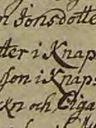 n Jonsdotter
tter i Knap
son i Knaps
och Elga